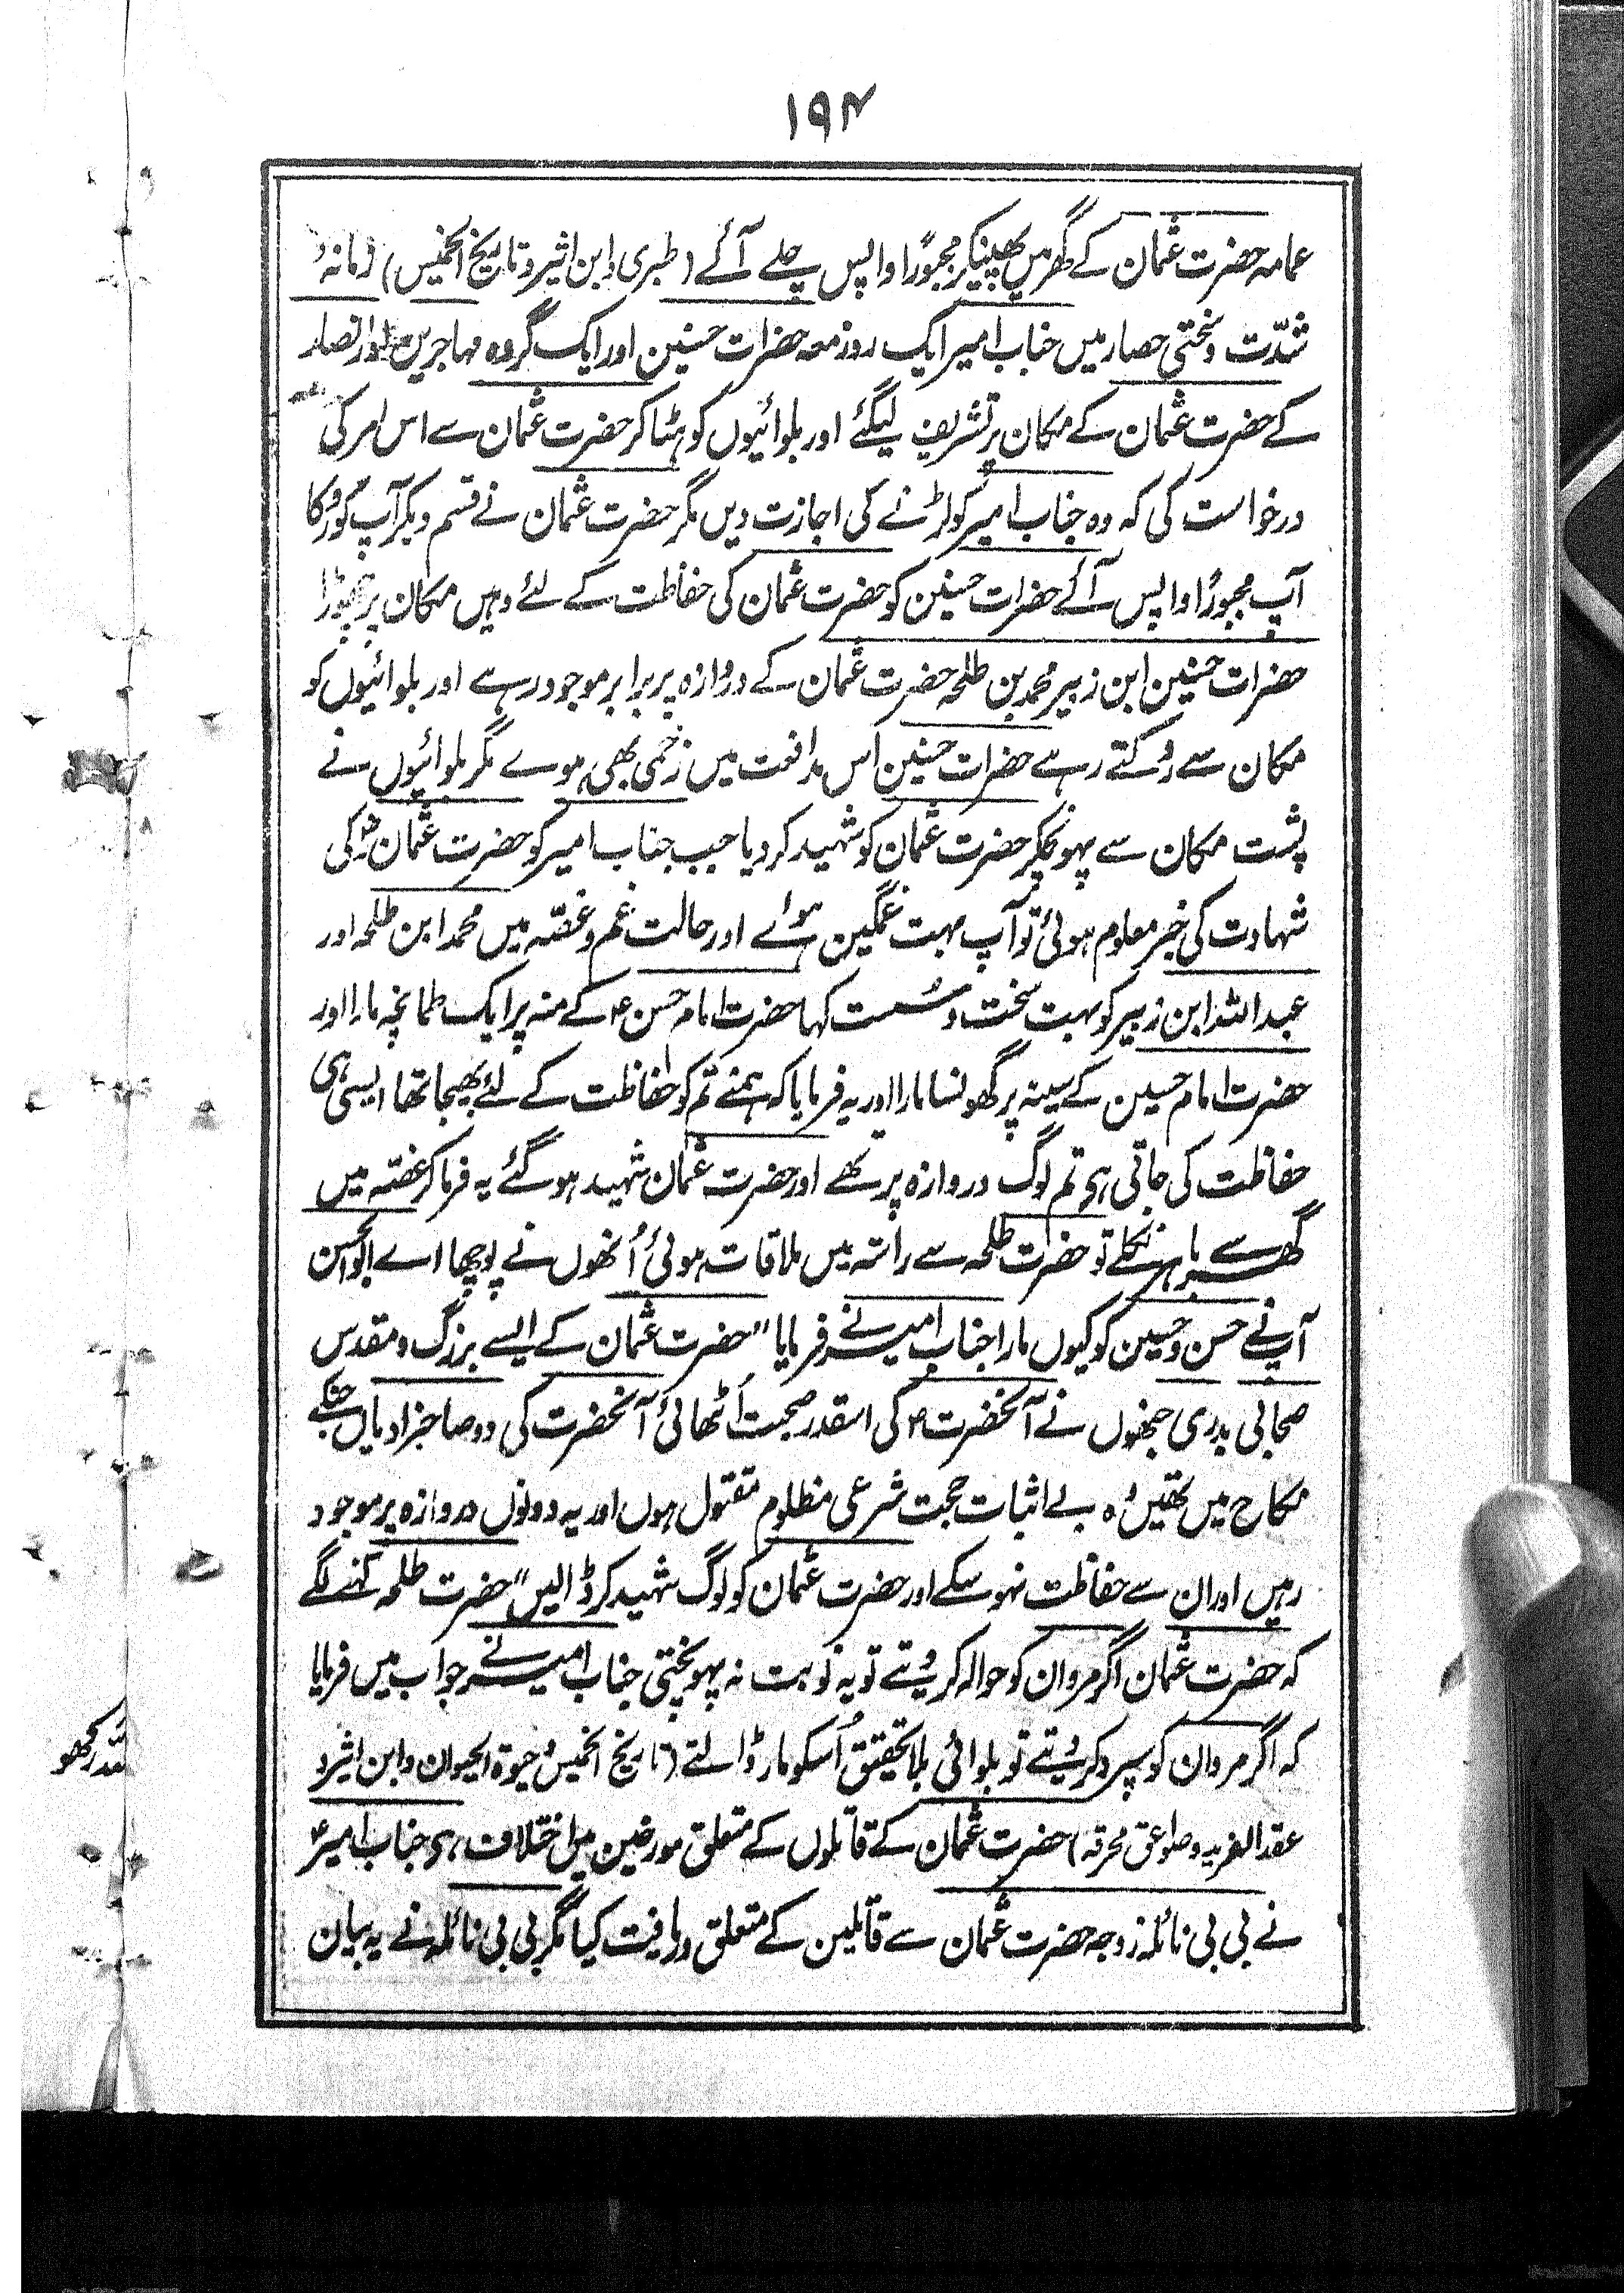 ۱۹۴
عمامہ حضرت عثمان کے گھر میں پھینکر مجبوراً واپس چلے آئے (طبری و ابن اثیر و تاریخ الخمیس) زمانہ
شدّت و سختی حصار میں جناب امیر ایک روز معہ حضرات حسنین اور ایک گروہ مہاجرین اور انصار
کے حضرت عثمان کے مکان پر تشریف لیگئے اور بلوائیوں کو ہٹا کر حضرت عثمان سے اس امر کی
درخواست کی کہ وہ جناب امیر کو لڑنے کی اجازت دیں مگر حضرت عثمان نے قسم دیکر آپ کو روکا
آپ مجبوراً واپس آئے حضرات حسنین کو حضرت عثمان کی حفاظت کے لئے وہیں مکان پر چھوڑا
حضرات حسنین ابن زبیر محمد بن طلحہ حضرت عثمان کے دروازہ پر برابر موجود رہے اور بلوائیوں کو
مکان سے روکتے رہے حضرات حسنین اس مدافعت میں زخمی بھی ہوے مگر بلوائیوں نے
پشت مکان سے پہونچکر حضرت عثمان کو شہید کر دیا جب جناب امیر کو حضرت عثمانؓ کی
شہادت کی خبر معلوم ہوئی تو آپ بہت غمگین ہوئے اور حالت غم و غصّہ میں محمد ابن طلحہ اور
عبد اللہ ابن زبیر کو بہت سخت و سُست کہا حضرت امام حسن ع کے منہ پر ایک طمانچہ مارا اور
حضرت امام حسین کے سینہ پر گھونسا مارا اور یہ فرمایا کہ ہمنے تم کو حفاظت کے لئے بھیجا تھا ایسی ہی
حفاظت کی جاتی ہی تم لوگ دروازہ پر تھے اور حضرت عثمان شہید ہو گئے یہ فرما کر غصّہ میں
گھر سے باہر نکلے تو حضرت طلحہ سے راستہ میں ملاقات ہوئی اُنھوں نے پوچھا اے ابوالحسن
آپنے حسن و حسین کو کیوں مارا جناب امیر نے فرمایا "حضرت عثمان کے ایسے بزرگ و مقدس
صحابی بدری جنھوں نے آنحضرت ص کی اسقدر صحبت اُٹھائی آنحضرت کی دو صاحبزادیاں جنکے
نکاح میں تھیں وہ بے اثبات حجت شرعی مظلوم مقتول ہوں اور یہ دونوں دروازہ پر موجود
رہیں اور ان سے حفاظت نہو سکے اور حضرت عثمان کو لوگ شہید کر ڈالیں" حضرت طلحہ کہنے لگے
کہ حضرت عثمان اگر مروان کو حوالہ کر دیتے تو یہ نوبت نہ پہونچتی جناب امیر نے جواب میں فرمایا
کہ اگر مروان کو سپرد کر دیتے تو بلوائی بلا تحقیق اُسکو مار ڈالتے (تاریخ الخمیس و حیوۃ الحیوان و ابن اثیر و
عقد الفرید و صواعق محرقہ) حضرت عثمان کے قاتلوں کے متعلق مورخین میں اختلاف ہی جناب امیر ع
نے بی بی نائلہ زوجہ حضرت عثمان سے قاتلین کے متعلق دریافت کیا مگر بی بی نائلہ نے یہ بیان